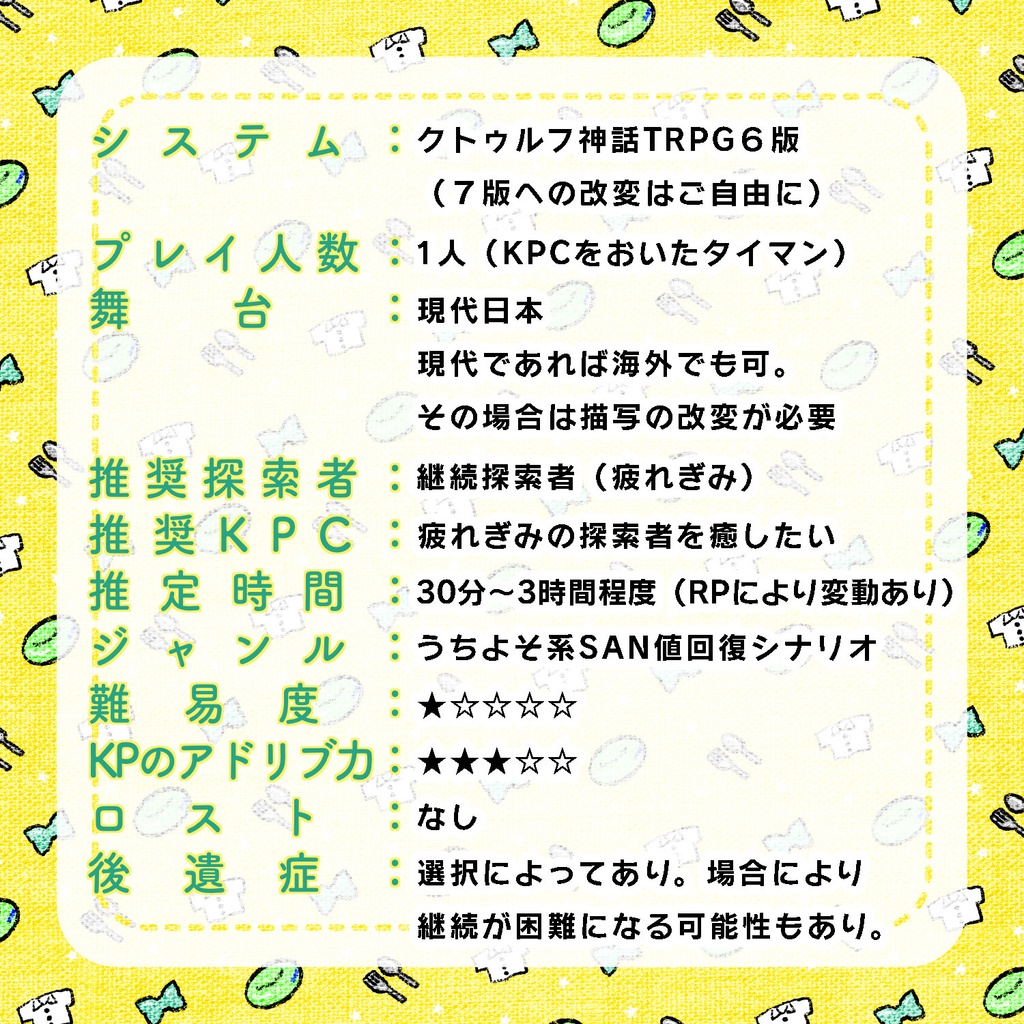 システム：クトゥルフ神話TRPG６版
（７版への改変はご自由に）
プレイ人数：1人（KPCをおいたタイマン）
舞台：現代日本
現代であれば海外でも可。
その場合は描写の改変が必要
推奨探索者：継続探索者（疲れぎみ）
推奨KPC：疲れぎみの探索者を癒したい
推定時間：30分～3時間程度（RPにより変動あり）
ジャンル：うちよそ系SAN値回復シナリオ
難易度：★☆☆☆☆
KPのアドリブ力：★★★☆☆
ロスト：なし
後遺症：選択によってあり。場合により
継続が困難になる可能性もあり。